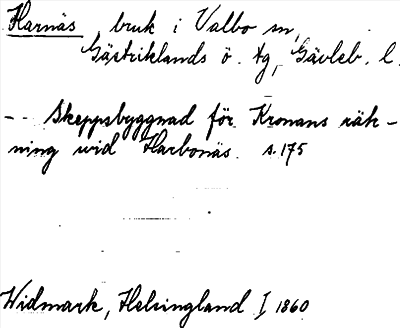 Harnäs, bruk i Valbo sn,
Gästriklands ö. tg, Gävleb. l.
-- Skeppsbyggnad för Kronans räk-
ning wid Harbonäs. s. 175
Widmark, Helsingland I 1860